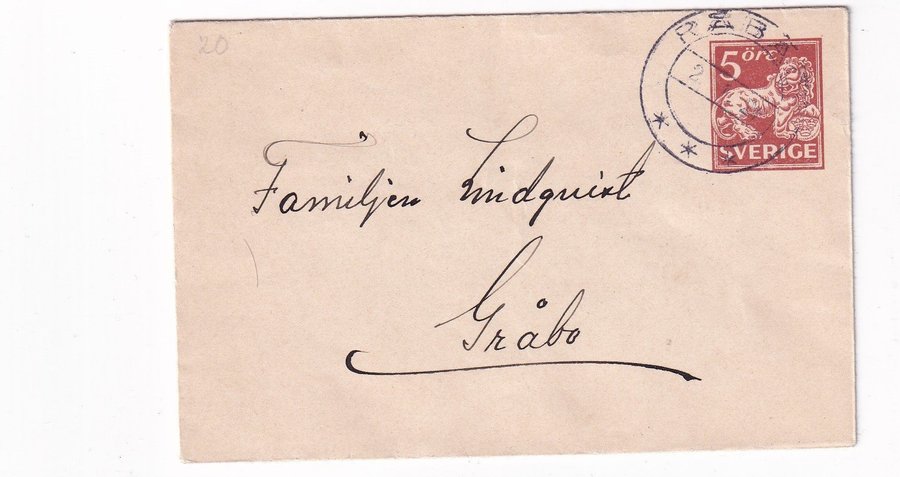 20
5 öre
SVERIGE
Familjen Lindqvist
Gråbo